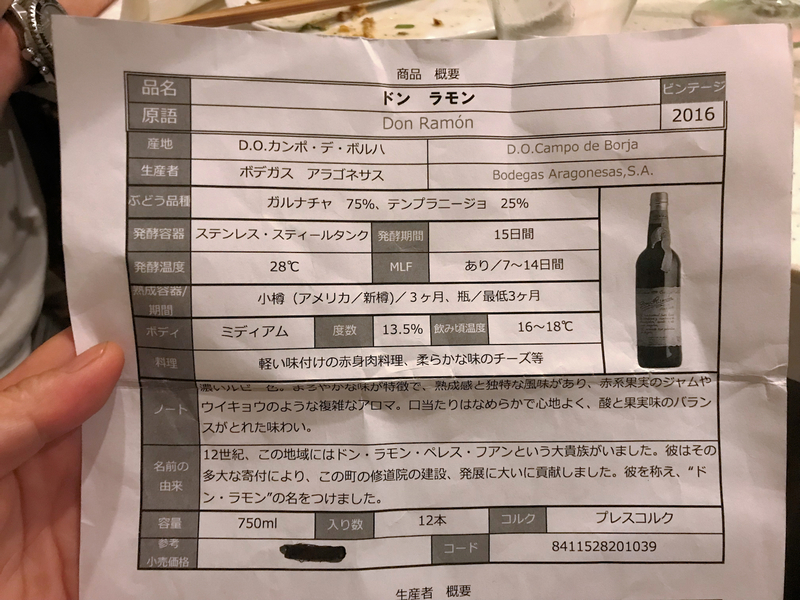 商品　概要
品名 ドン　ラモン ビンテージ
原語 Don Ramón 2016
産地 D.O.カンポ・デ・ボルハ D.O.Campo de Borja
生産者 ボデガス　アラゴネサス Bodegas Aragonesas,S.A.
ぶどう品種 ガルナチャ　75%、テンプラニージョ　25%
発酵容器 ステンレス・スティールタンク 発酵期間 15日間
発酵温度 28℃ MLF あり／7～14日間
熟成容器/
期間 小樽（アメリカ／新樽）／３ヶ月、瓶／最低3ヶ月
ボディ ミディアム 度数 13.5% 飲み頃温度 16～18℃
料理 軽い味付けの赤身肉料理、柔らかな味のチーズ等
ノート 濃いルビー色。まろやかな味が特徴で、熟成感と独特な風味があり、赤系果実のジャムや
ウイキョウのような複雑なアロマ。口当たりはなめらかで心地よく、酸と果実味のバラン
スがとれた味わい。
名前の
由来 12世紀、この地域にはドン・ラモン・ペレス・フアンという大貴族がいました。彼はその
多大な寄付により、この町の修道院の建設、発展に大いに貢献しました。彼を称え、“ド
ン・ラモン”の名をつけました。
容量 750ml 入り数 12本 コルク プレスコルク
参考
小売価格 コード 8411528201039
生産者　概要